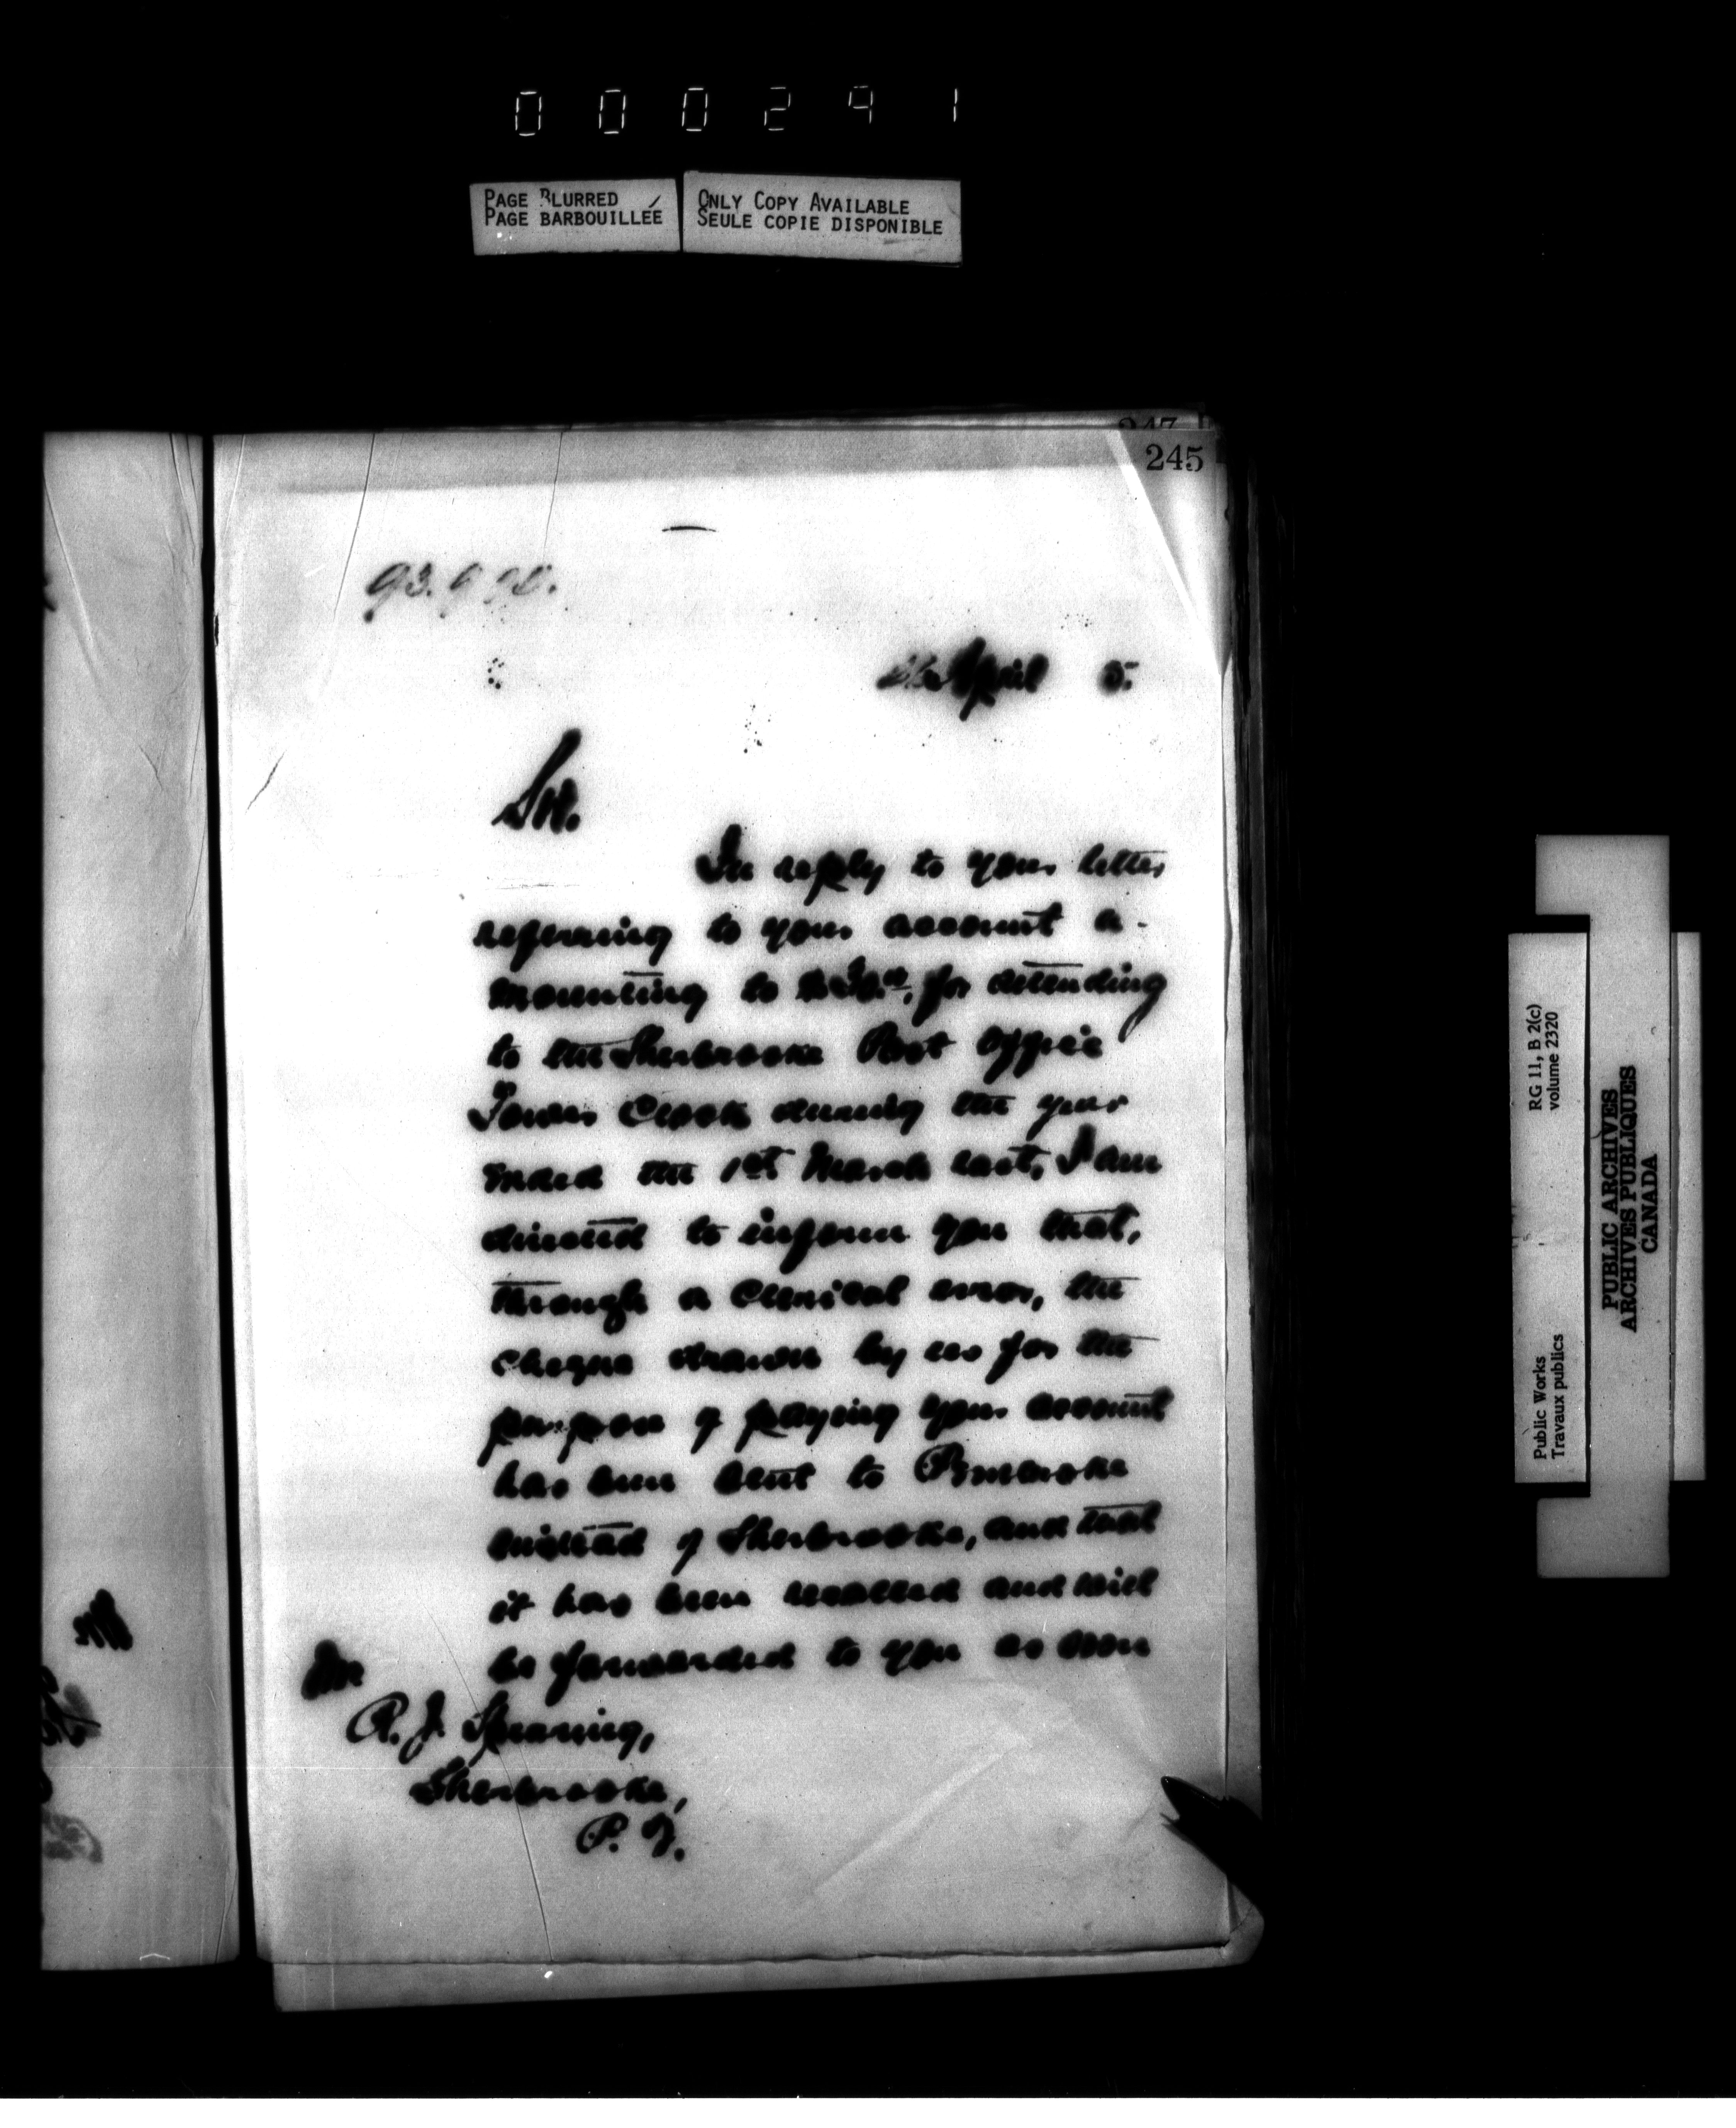 000291
PAGE BLURRED
PAGE BARBOUILLÉE
ONLY COPY AVAILABLE
SEULE COPIE DISPONIBLE
247
245
April 5.
Sir.
In reply to your letter
referring to your account a-
mounting to for attending
to the Sherbrooke Post Office
Tower Clock during the year
ended the 1st March last, I am
directed to inform you that,
through a clerical error, the
cheque drawn by us for the
purpose of paying your account
has been sent to Pembroke
instead of Sherbrooke, and that
it has been recalled and will
be forwarded to you as soon
R. J. Spearing,
Sherbrooke,
P. Q.
RG 11, B 2(c)
volume 2320
Public Works
Travaux publics
PUBLIC ARCHIVES
ARCHIVES PUBLIQUES
CANADA